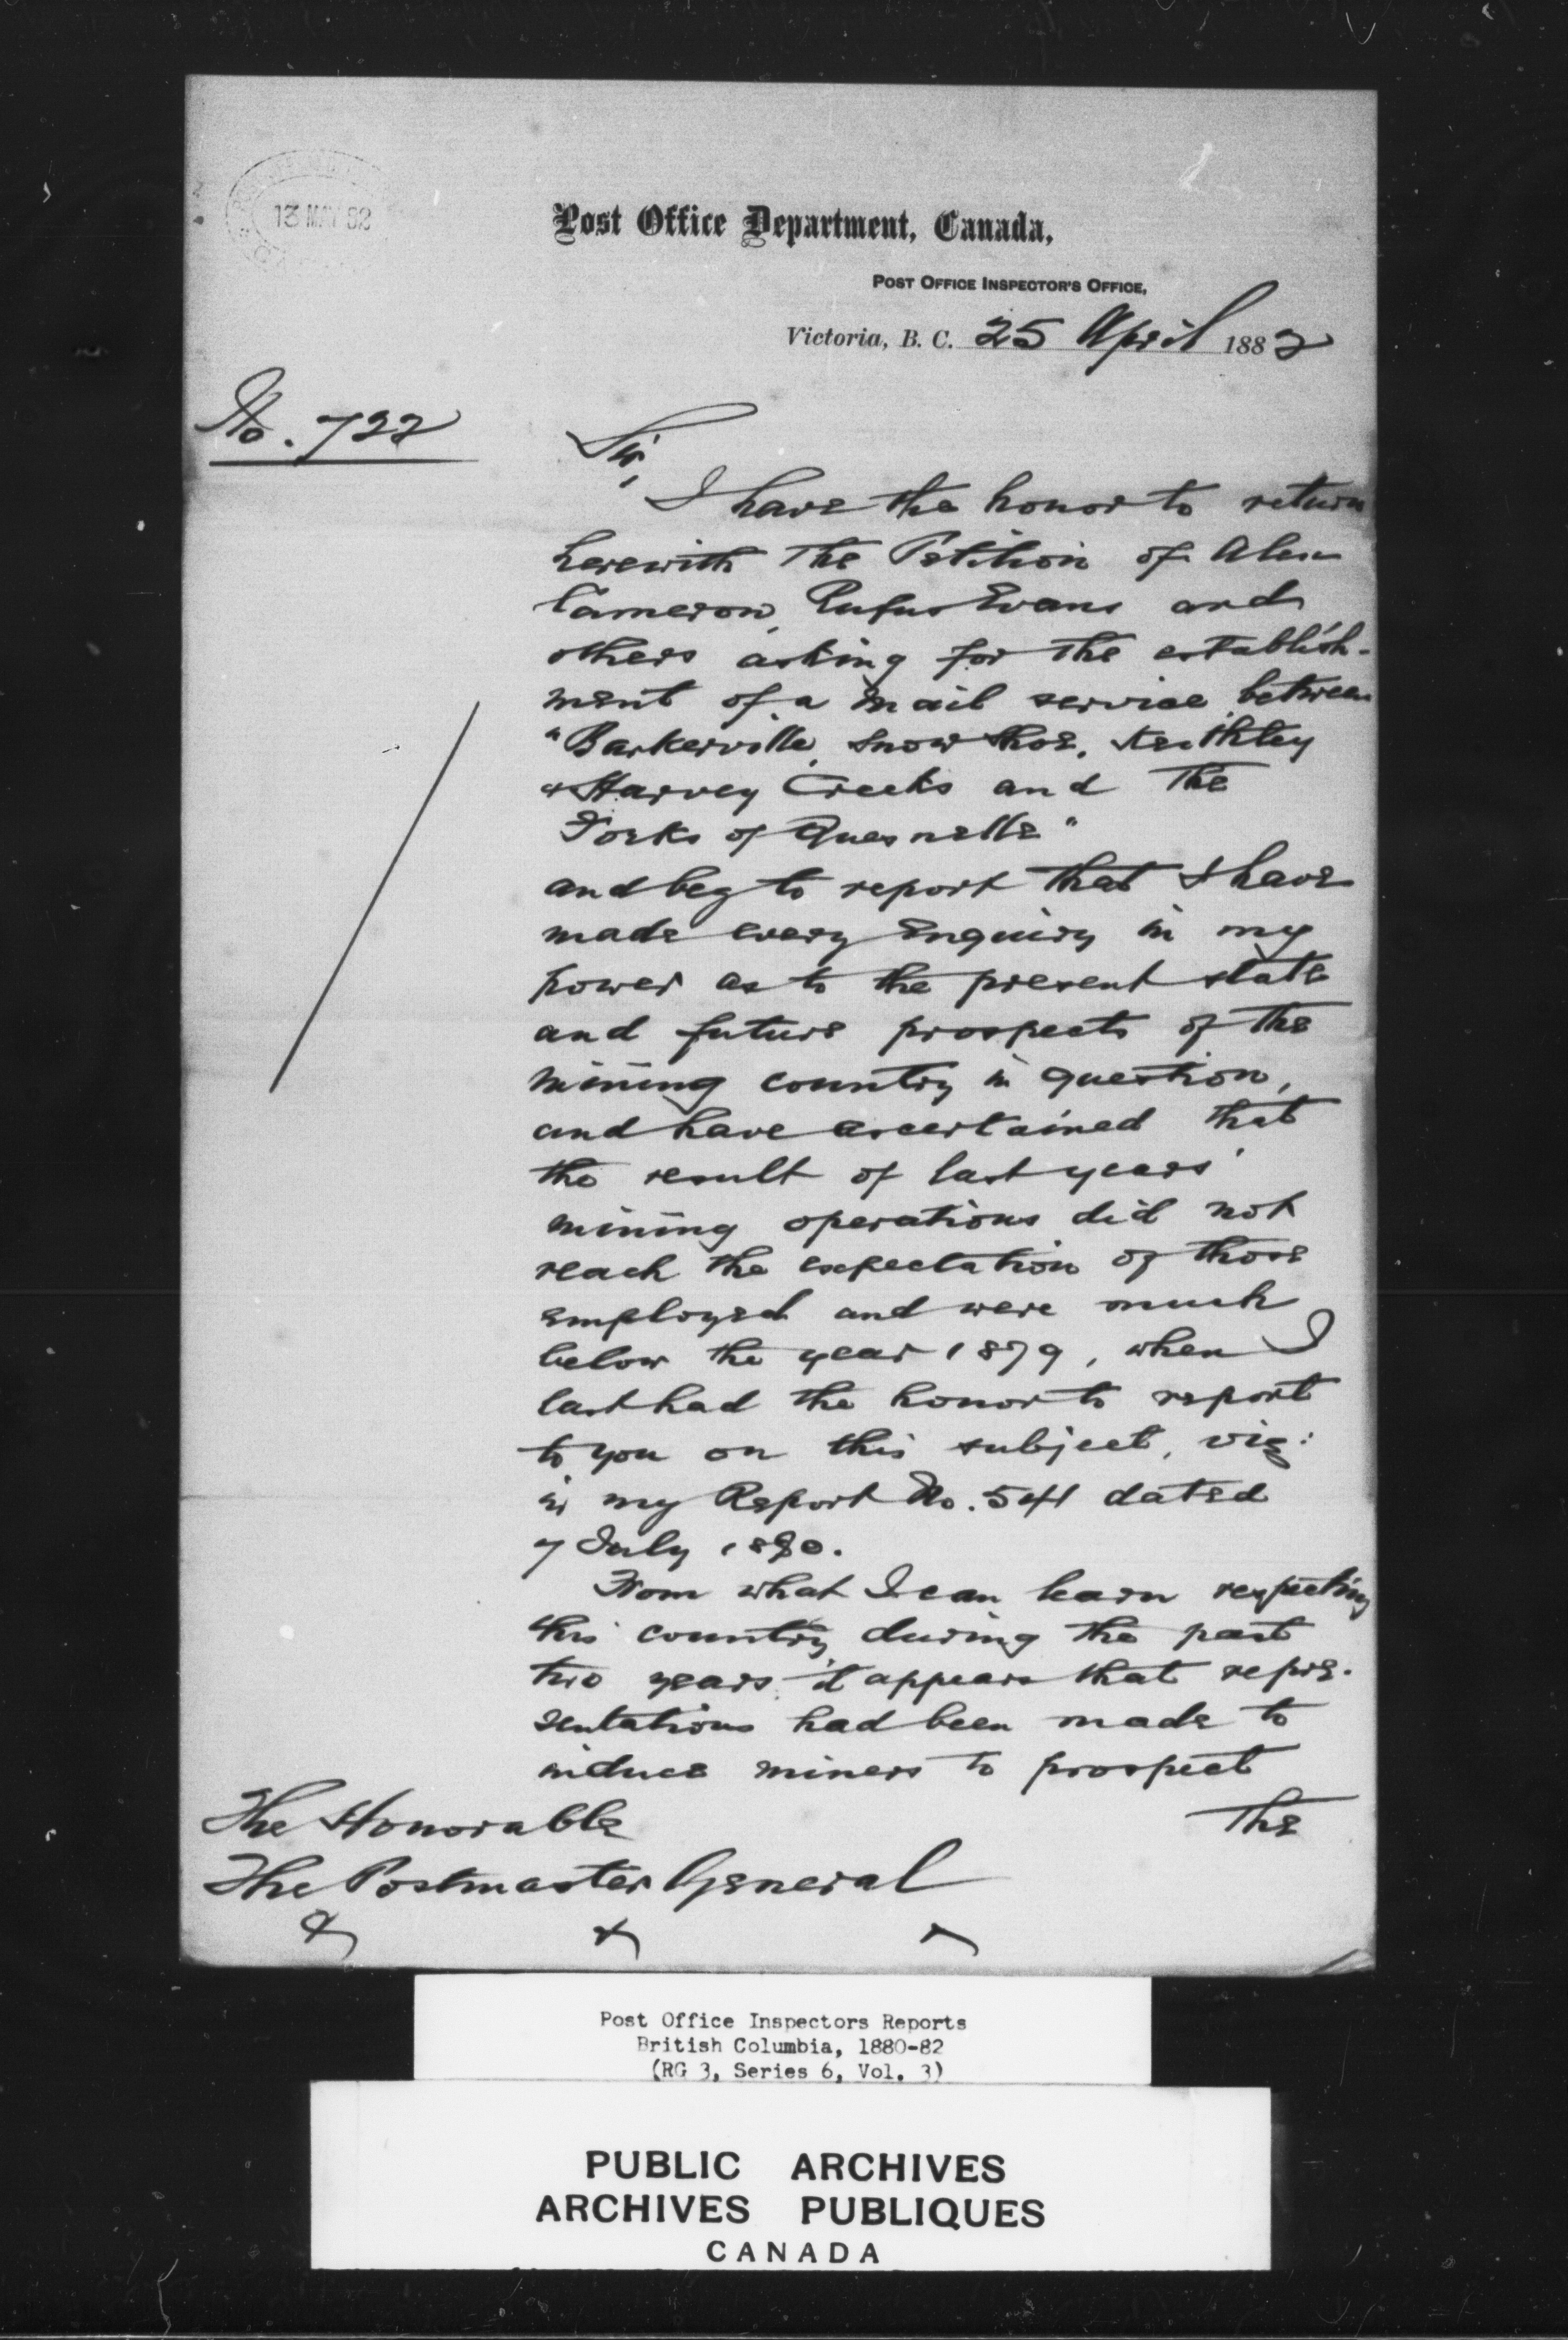 13 MAY 82
Post Office Department, Canada,
POST OFFICE INSPECTOR'S OFFICE,
Victoria, B. C. 25 April 1882
No. 722
Sir,
I have the honor to return
herewith the Petition of Alex
Cameron, Rufus Evans and
others asking for the establish-
ment of a mail service between
"Barkerville, Snow Shoe, Keithley
& Harvey Creeks and the
Forks of Quesnelle"
and beg to report that I have
made every enquiry in my
power as to the present state
and future prospects of the
mining country in question,
and have ascertained that
the result of last years'
mining operations did not
reach the expectation of those
employed and were much
below the year 1879, when I
last had the honor to report
to you on this subject, viz:
in my Report No. 541 dated
7 July 1880.
From what I can learn respecting
this country during the past
two years it appears that repre-
sentations had been made to
induce miners to prospect
the
The Honorable
The Postmaster General
& &
Post Office Inspectors Reports
British Columbia, 1880-82
(RG 3, Series 6, Vol. 3)
PUBLIC ARCHIVES
ARCHIVES PUBLIQUES
CANADA